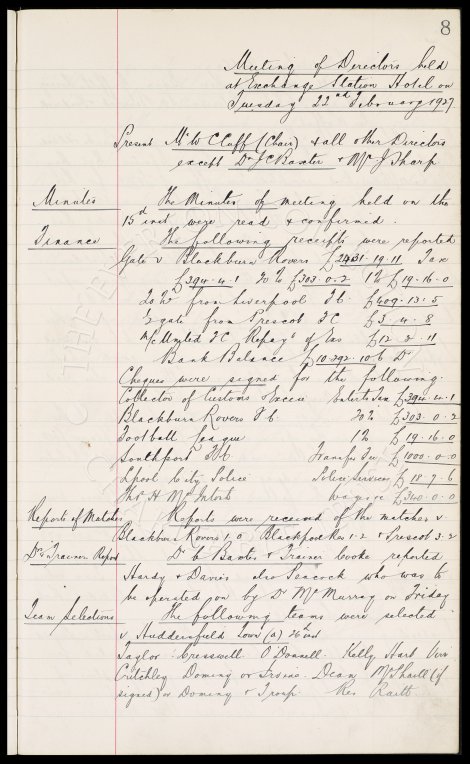 8
Meeting of Directors held
at Exchange Station Hotel on
Tuesday 22nd February 1927
Present Mr W C Cuff (Chair) & all other Directors
except Dr J C Baxter & Mr J Sharp
Minutes The Minutes of meeting held on the
15th inst were read & confirmed.
Finance The following receipts were reported
Gate v Blackburn Rovers £2431-19-11 Tax
£394-4-1 20% £303-0-2 1% £19-16-0
20% from Liverpool F.C. £409-13-5
½ gate from Prescot FC £3-4-8
Repayt of £12-2-11
Bank Balance £10,392-10-6 Dr
Cheques were signed for the following
Collector of Customs & Excise Enterts Tax £394-4-1
Blackburn Rovers F.C. 20% £303-0-2
Football League 1% £19-16-0
Southport F.C. Transfer Fee £1000-0-0
Lpool City Police Police Services £18-7-6
Thos H McIntosh wages £340-0-0
Reports of Matches Reports were received of the matches v
Blackburn Rovers 1.0 Blackpool Res 1-2 & Prescot 3-2
Drs & Trainers Report Dr Baxter & Trainer Cooke reported
Hardy & Davies also Peacock who was to
be operated on by Dr McMurray on Friday
Team Selections The following teams were selected
v Huddersfield Town (a) 26th inst
Taylor: Cresswell O'Donnell. Kelly Hart Virr
Critchley Dominy or Irvine. Dean (if
signed) or Dominy & Troup. Res Raitt